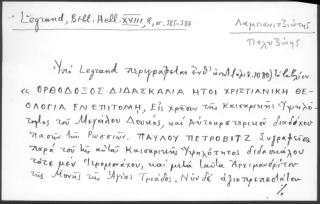 Legrand, Bibl. Hell. XVIII, 2, σ. 385-387
Λαμπανιτζιώτης
Πολυζώης
Ὑπὸ Legrand περιγράφεται ἐνθ' ἀνωτ. (ἀριθ. 1080) τὸ βιβλίον
« ΟΡΘΟΔΟΞΟΣ ΔΙΔΑΣΚΑΛΙΑ ΗΤΟΙ ΧΡΙΣΤΙΑΝΙΚΗ ΘΕ-
ΟΛΟΓΙΑ ΕΝ ΕΠΙΤΟΜΗ, Εἰς χρῆσιν τῆς Καισαρικῆς Ὑψηλό-
τητος τοῦ Μεγάλου Δουκός, καὶ Αὐτοκρατορικοῦ διαδόχου
πασῶν τῶν Ρωσσιῶν. ΠΑΥΛΟΥ ΠΕΤΡΟΒΙΤΖ Συγγραφεῖσα
παρὰ τοῦ τῆς αὐτοῦ Καισαρικῆς Ὑψηλότητος διδασκάλου
τότε μὲν Ἱερομονάχου, καὶ μετὰ ταῦτα Ἀρχιμανδρίτου
τῆς Μονῆς τῆς Ἁγίας Τριάδος. Νῦν δὲ ἀξιοπρεπεστάτου
%